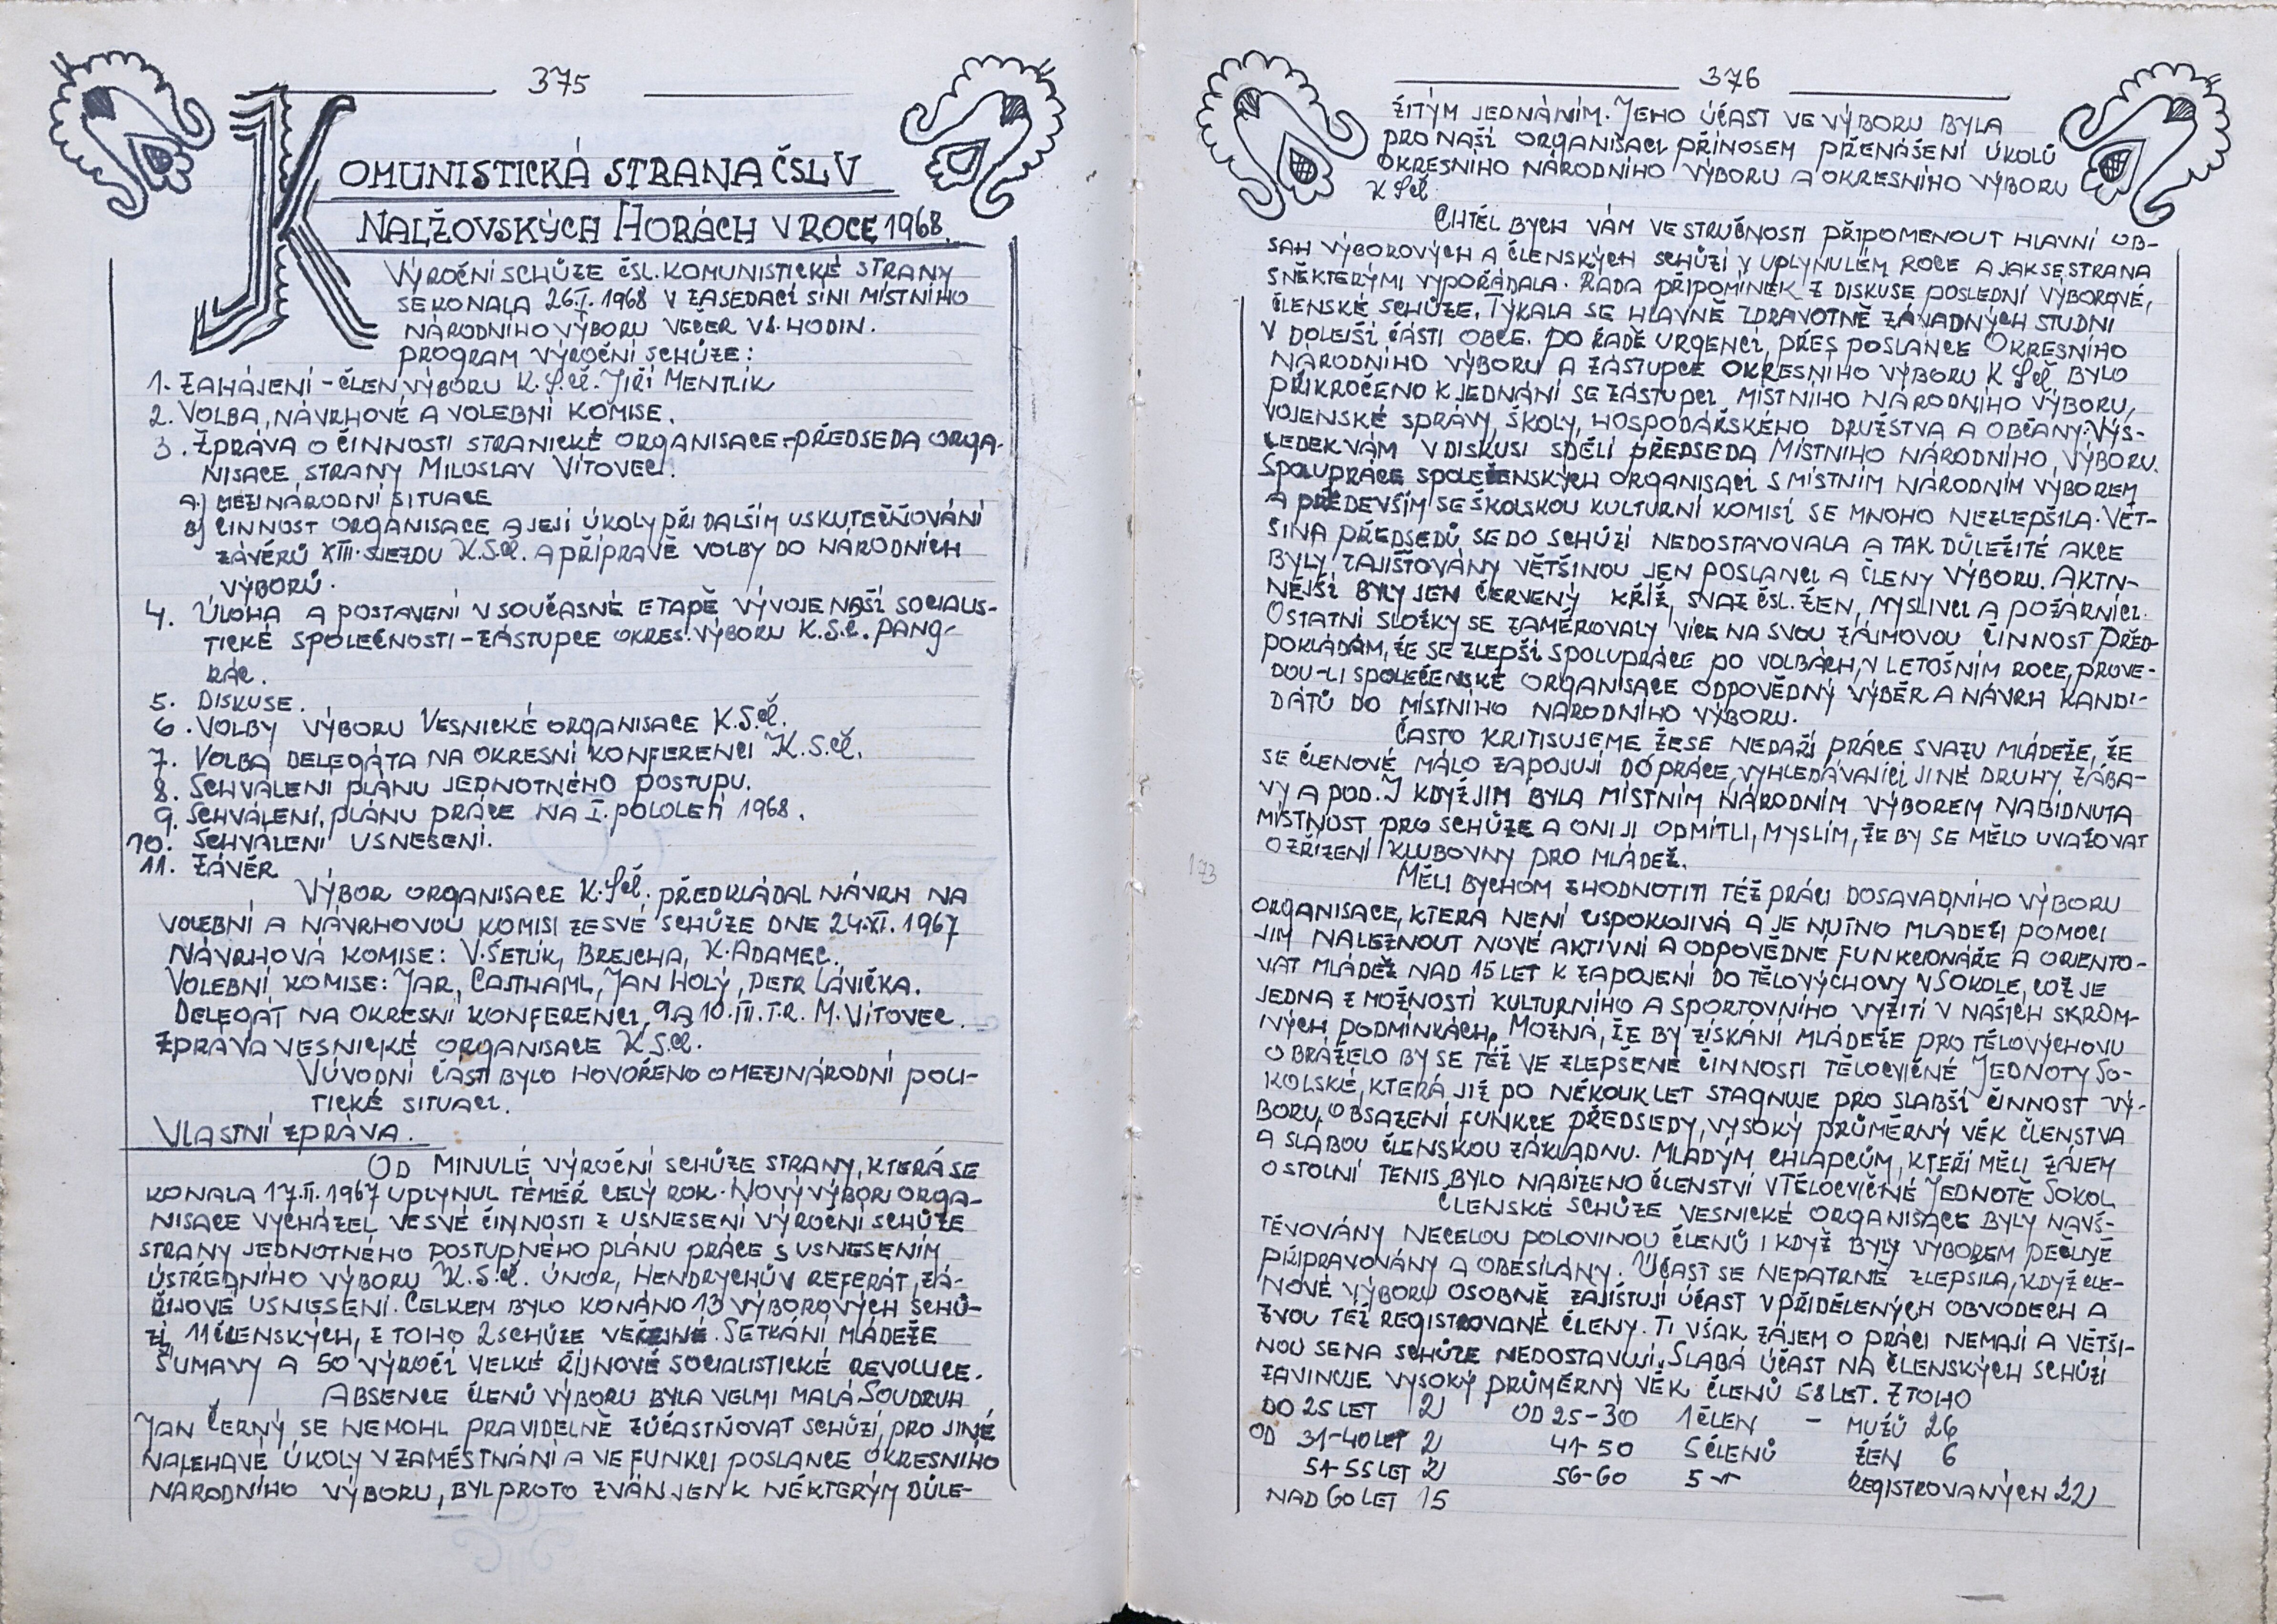 375
KOMUNISTICKÁ STRANA ČSL V
NALŽOVSKÝCH HORÁCH V ROCE 1968.
VÝROČNÍ SCHŮZE ČSL. KOMUNISTICKÉ STRANY
SE KONALA 26.I. 1968 V ZASEDACÍ SÍNI MÍSTNÍHO
NÁRODNÍHO VÝBORU VEČER V 8. HODIN.
PROGRAM VÝROČNÍ SCHŮZE:
1. ZAHÁJENÍ - ČLEN VÝBORU K.S.Č. JIŘÍ MENTLÍK
2. VOLBA, NÁVRHOVÉ A VOLEBNÍ KOMISE.
3. ZPRÁVA O ČINNOSTI STRANICKÉ ORGANISACE - PŘEDSEDA ORGA-
NISACE STRANY MILOSLAV VÍTOVEC.
A) MEZINÁRODNÍ SITUACE
B) ČINNOST ORGANISACE A JEJÍ ÚKOLY PŘI DALŠÍM USKUTEČŇOVÁNÍ
ZÁVĚRŮ XIII. SJEZDU K.S.Č. A PŘÍPRAVĚ VOLBY DO NÁRODNÍCH
VÝBORŮ.
4. ÚLOHA A POSTAVENÍ V SOUČASNÉ ETAPĚ VÝVOJE NAŠÍ SOCIALIS-
TICKÉ SPOLEČNOSTI - ZÁSTUPCE OKRES. VÝBORU K.S.Č. PANG-
RÁC.
5. DISKUSE.
6. VOLBY VÝBORU VESNICKÉ ORGANISACE K.S.Č.
7. VOLBA DELEGÁTA NA OKRESNÍ KONFERENCI K.S.Č.
8. SCHVÁLENÍ PLÁNU JEDNOTNÉHO POSTUPU.
9. SCHVÁLENÍ, PLÁNU PRÁCE NA I. POLOLETÍ 1968.
10. SCHVÁLENÍ USNESENÍ.
11. ZÁVĚR
VÝBOR ORGANISACE K.S.Č. PŘEDKLÁDAL NÁVRH NA
VOLEBNÍ A NÁVRHOVOU KOMISI ZE SVÉ SCHŮZE DNE 24.XI. 1967
NÁVRHOVÁ KOMISE: V. ŠETLÍK, BREJCHA, K. ADAMEC.
VOLEBNÍ KOMISE: JAR. CASTHAML, JAN HOLÝ, PETR LÁVIČKA.
DELEGÁT NA OKRESNÍ KONFERENCI, 9 A 10. III. T.R. M. VÍTOVEC.
ZPRÁVA VESNICKÉ ORGANISACE K.S.Č.
V ÚVODNÍ ČÁSTI BYLO HOVOŘENO O MEZINÁRODNÍ POLI-
TICKÉ SITUACI.
VLASTNÍ ZPRÁVA.
OD MINULÉ VÝROČNÍ SCHŮZE STRANY, KTERÁ SE
KONALA 17.II. 1967 UPLYNUL TÉMĚŘ CELÝ ROK. NOVÝ VÝBOR ORGA-
NISACE VYCHÁZEL VE SVÉ ČINNOSTI Z USNESENÍ VÝROČNÍ SCHŮZE
STRANY JEDNOTNÉHO POSTUPNÉHO PLÁNU PRÁCE S USNESENÍM
ÚSTŘEDNÍHO VÝBORU K.S.Č. ÚNOR, HENDRYCHŮV REFERÁT, ZÁ-
ŘIJOVÉ USNESENÍ. CELKEM BYLO KONÁNO 13 VÝBOROVÝCH SCHŮ-
ZÍ, 11 ČLENSKÝCH, Z TOHO 2 SCHŮZE VEŘEJNÉ. SETKÁNÍ MLÁDEŽE
ŠUMAVY A 50 VÝROČÍ VELKÉ ŘÍJNOVÉ SOCIALISTICKÉ REVOLUCE.
ABSENCE ČLENŮ VÝBORU BYLA VELMI MALÁ. SOUDRUH
JAN ČERNÝ SE NEMOHL PRAVIDELNĚ ZÚČASTŇOVAT SCHŮZÍ, PRO JINÉ
NALÉHAVÉ ÚKOLY V ZAMĚSTNÁNÍ A VE FUNKCI POSLANCE OKRESNÍHO
NÁRODNÍHO VÝBORU, BYL PROTO ZVÁN JEN K NĚKTERÝM DŮLE-
376
ŽITÝM JEDNÁNÍM. JEHO ÚČAST VE VÝBORU BYLA
PRO NAŠÍ ORGANISACI PŘÍNOSEM PŘENÁŠENÍ ÚKOLŮ
OKRESNÍHO NÁRODNÍHO VÝBORU A OKRESNÍHO VÝBORU
KSČ.
CHTĚL BYCH VÁM VE STRUČNOSTI PŘIPOMENOUT HLAVNÍ OB-
SAH VÝBOROVÝCH A ČLENSKÝCH SCHŮZÍ V UPLYNULÉM ROCE A JAK SE STRANA
S NĚKTERÝMI VYPOŘÁDALA. ŘADA PŘIPOMÍNEK Z DISKUSE POSLEDNÍ VÝBOROVÉ,
ČLENSKÉ SCHŮZE, TÝKALA SE HLAVNĚ ZDRAVOTNĚ ZÁVADNÝCH STUDNÍ
V DOLEJŠÍ ČÁSTI OBCE. PO ŘADĚ URGENCÍ, PŘES POSLANCE OKRESNÍHO
NÁRODNÍHO VÝBORU A ZÁSTUPCE OKRESNÍHO VÝBORU KSČ BYLO
PŘIKROČENO K JEDNÁNÍ SE ZÁSTUPCI MÍSTNÍHO NÁRODNÍHO VÝBORU,
VOJENSKÉ SPRÁVY, ŠKOLY, HOSPODÁŘSKÉHO DRUŽSTVA A OBČANY. VÝS-
LEDEK VÁM V DISKUSI SDĚLÍ PŘEDSEDA MÍSTNÍHO NÁRODNÍHO VÝBORU.
SPOLUPRÁCE SPOLEČENSKÝCH ORGANISACÍ S MÍSTNÍM NÁRODNÍM VÝBOREM
A PŘEDEVŠÍM SE ŠKOLSKOU KULTURNÍ KOMISÍ SE MNOHO NEZLEPŠILA. VĚT-
ŠINA PŘEDSEDŮ SE DO SCHŮZÍ NEDOSTAVOVALA A TAK DŮLEŽITÉ AKCE
BYLY ZAJIŠŤOVÁNY VĚTŠINOU JEN POSLANCI A ČLENY VÝBORU. AKTIV-
NĚJŠÍ BYLY JEN ČERVENÝ KŘÍŽ, SVAZ ČSL. ŽEN, MYSLIVCI A POŽÁRNÍCI.
OSTATNÍ SLOŽKY SE ZAMĚŘOVALY VÍCE NA SVOU ZÁJMOVOU ČINNOST. PŘED-
POKLÁDÁM, ŽE SE ZLEPŠÍ SPOLUPRÁCE PO VOLBÁCH, V LETOŠNÍM ROCE, PROVE-
DOU-LI SPOLEČENSKÉ ORGANISACE ODPOVĚDNÝ VÝBĚR A NÁVRH KANDI-
DÁTŮ DO MÍSTNÍHO NÁRODNÍHO VÝBORU.
ČASTO KRITISUJEME, ŽE SE NEDAŘÍ PRÁCE SVAZU MLÁDEŽE, ŽE
SE ČLENOVÉ MÁLO ZAPOJUJÍ DO PRÁCE, VYHLEDÁVAJÍCÍ JINÉ DRUHY ZÁBA-
VY A POD. I KDYŽ JIM BYLA MÍSTNÍM NÁRODNÍM VÝBOREM NABÍDNUTA
MÍSTNOST PRO SCHŮZE A ONI JI ODMÍTLI, MYSLÍM, ŽE BY SE MĚLO UVAŽOVAT
O ZŘÍZENÍ KLUBOVNY PRO MLÁDEŽ.
173
MĚLI BYCHOM ZHODNOTIT TÉŽ PRÁCI DOSAVADNÍHO VÝBORU
ORGANISACE, KTERÁ NENÍ USPOKOJIVÁ A JE NUTNO MLÁDEŽI POMOCI
JIM NALEZNOUT NOVÉ AKTIVNÍ A ODPOVĚDNÉ FUNKCIONÁŘE A ORIENTO-
VAT MLÁDEŽ NAD 15 LET K ZAPOJENÍ DO TĚLOVÝCHOVY V SOKOLE, COŽ JE
JEDNA Z MOŽNOSTÍ KULTURNÍHO A SPORTOVNÍHO VYŽITÍ V NAŠICH SKROM-
NÝCH PODMÍNKÁCH. MOŽNÁ, ŽE BY ZÍSKÁNÍ MLÁDEŽE PRO TĚLOVÝCHOVU
OBRÁŽELO BY SE TÉŽ VE ZLEPŠENÉ ČINNOSTI TĚLOCVIČNÉ JEDNOTY SO-
KOLSKÉ, KTERÁ JIŽ PO NĚKOLIK LET STAGNUJE PRO SLABŠÍ ČINNOST VÝ-
BORU, OBSAZENÍ FUNKCE PŘEDSEDY, VYSOKÝ PRŮMĚRNÝ VĚK ČLENSTVA
A SLABOU ČLENSKOU ZÁKLADNU. MLADÝM CHLAPCŮM, KTEŘÍ MĚLI ZÁJEM
O STOLNÍ TENIS, BYLO NABÍZENO ČLENSTVÍ V TĚLOCVIČNÉ JEDNOTĚ SOKOL
ČLENSKÉ SCHŮZE VESNICKÉ ORGANISACE BYLY NAVŠ-
TĚVOVÁNY NECELOU POLOVINOU ČLENŮ I KDYŽ BYLY VÝBOREM PEČLIVĚ
PŘIPRAVOVÁNY A OBESÍLÁNY. ÚČAST SE NEPATRNĚ ZLEPŠILA, KDYŽ ČLE-
NOVÉ VÝBORU OSOBNĚ ZAJIŠŤUJÍ ÚČAST V PŘIDĚLENÝCH OBVODECH A
ZVOU TÉŽ REGISTROVANÉ ČLENY. TI VŠAK ZÁJEM O PRÁCI NEMAJÍ A VĚTŠI-
NOU SE NA SCHŮZE NEDOSTAVUJÍ. SLABÁ ÚČAST NA ČLENSKÝCH SCHŮZÍ
ZAVINUJE VYSOKÝ PRŮMĚRNÝ VĚK ČLENŮ 58 LET. Z TOHO
DO 25 LET 2 OD 25-30 1 ČLEN - MUŽŮ 26
OD 31-40 LET 2 41-50 5 ČLENŮ ŽEN 6
51-55 LET 2 56-60 5 -"- REGISTROVANÝCH 22
NAD 60 LET 15